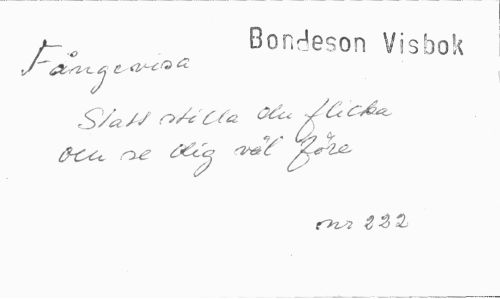 Bondeson Visbok
Fångevisa
Statt stilla du flicka
och se dig väl före
nr 222